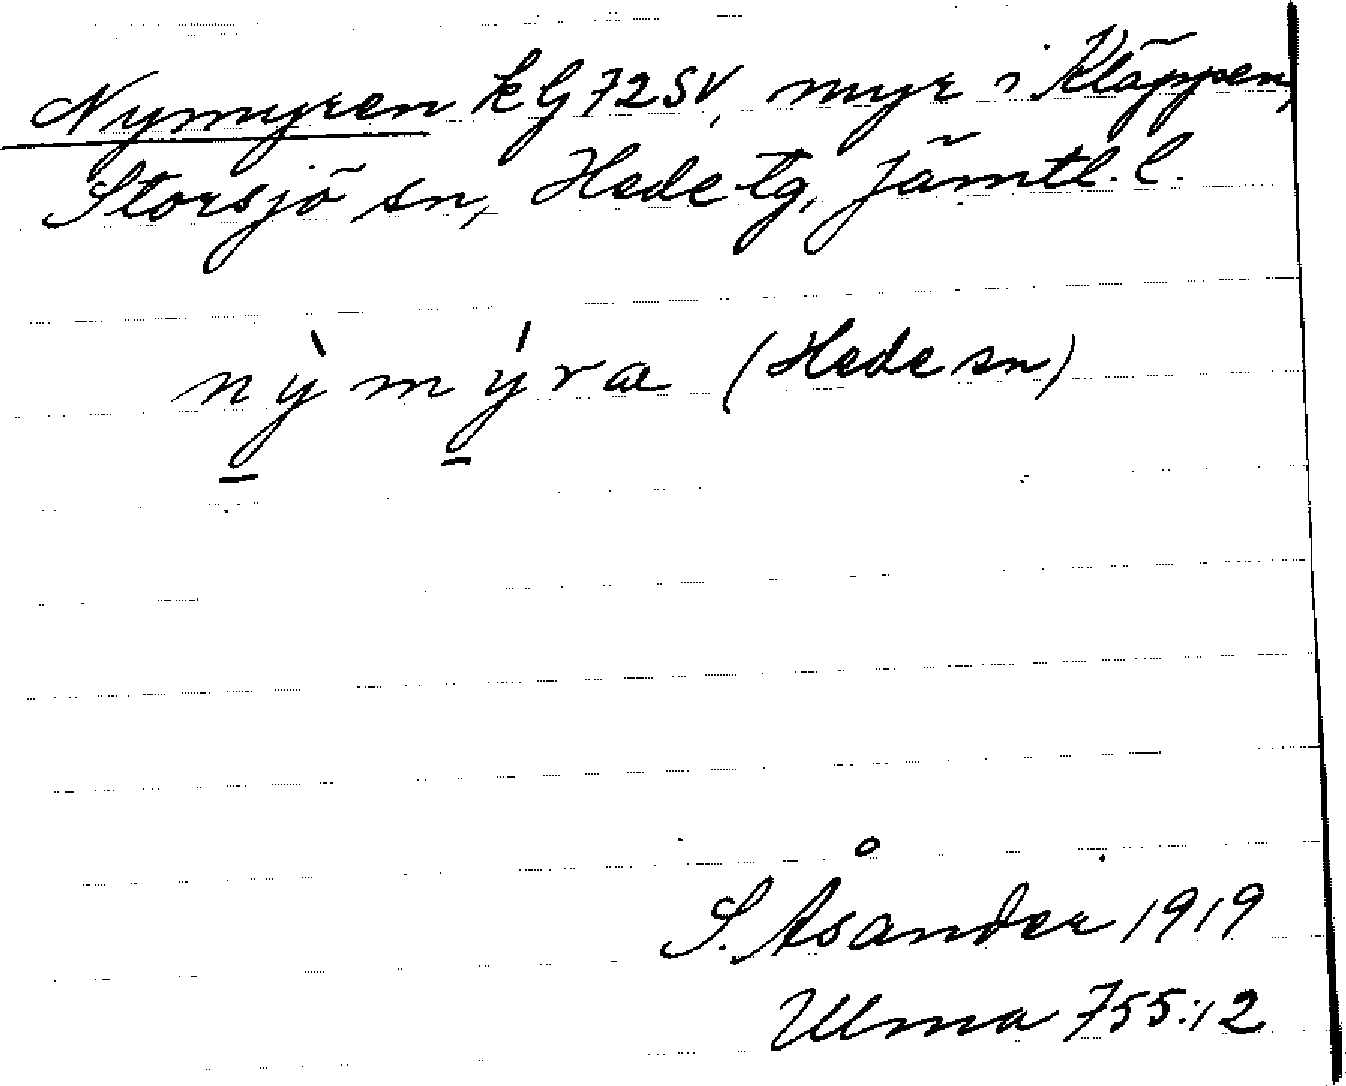 Nymyren kG72SV, myr i Kläppen,
Storsjö sn, Hede tg, Jämtl. l.
nỳ̠mý̠ra (Hede sn)
S. Åsander 1919
Ulma 755:12